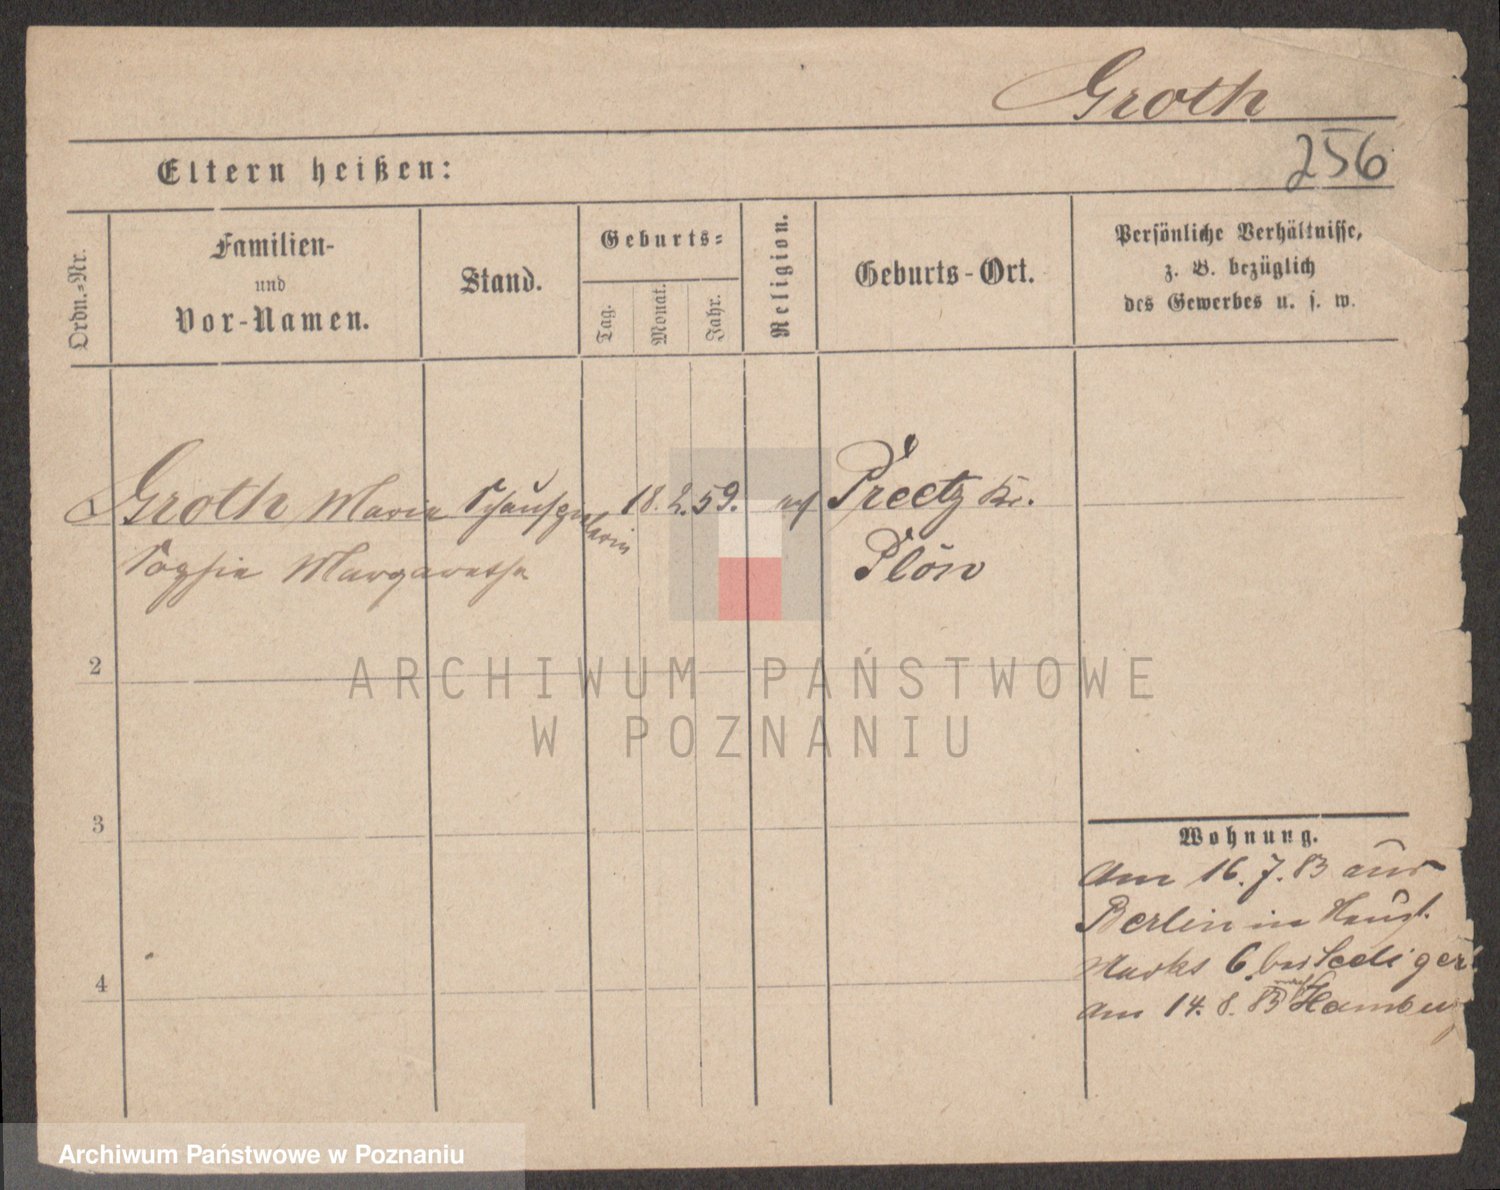 Groth
256
Eltern heißen:
Ordn.-Nr.
Familien-
und
Vor-Namen.
Stand.
Geburts-
Tag.
Monat.
Jahr.
Religion.
Geburts-Ort.
Persönliche Verhältnisse,
z. B. bezüglich
des Gewerbes u. s. w.
Groth Maria Schauspielerin 18. 2. 59. Preetz Kr.
Sophie Margarethe Plön
2
3
4
Wohnung.
Am 16. 7. 83 aus
Berlin in
6 bei
Am 14. 8. 83 nach Hamburg
ARCHIWUM PAŃSTWOWE
W POZNANIU
Archiwum Państwowe w Poznaniu